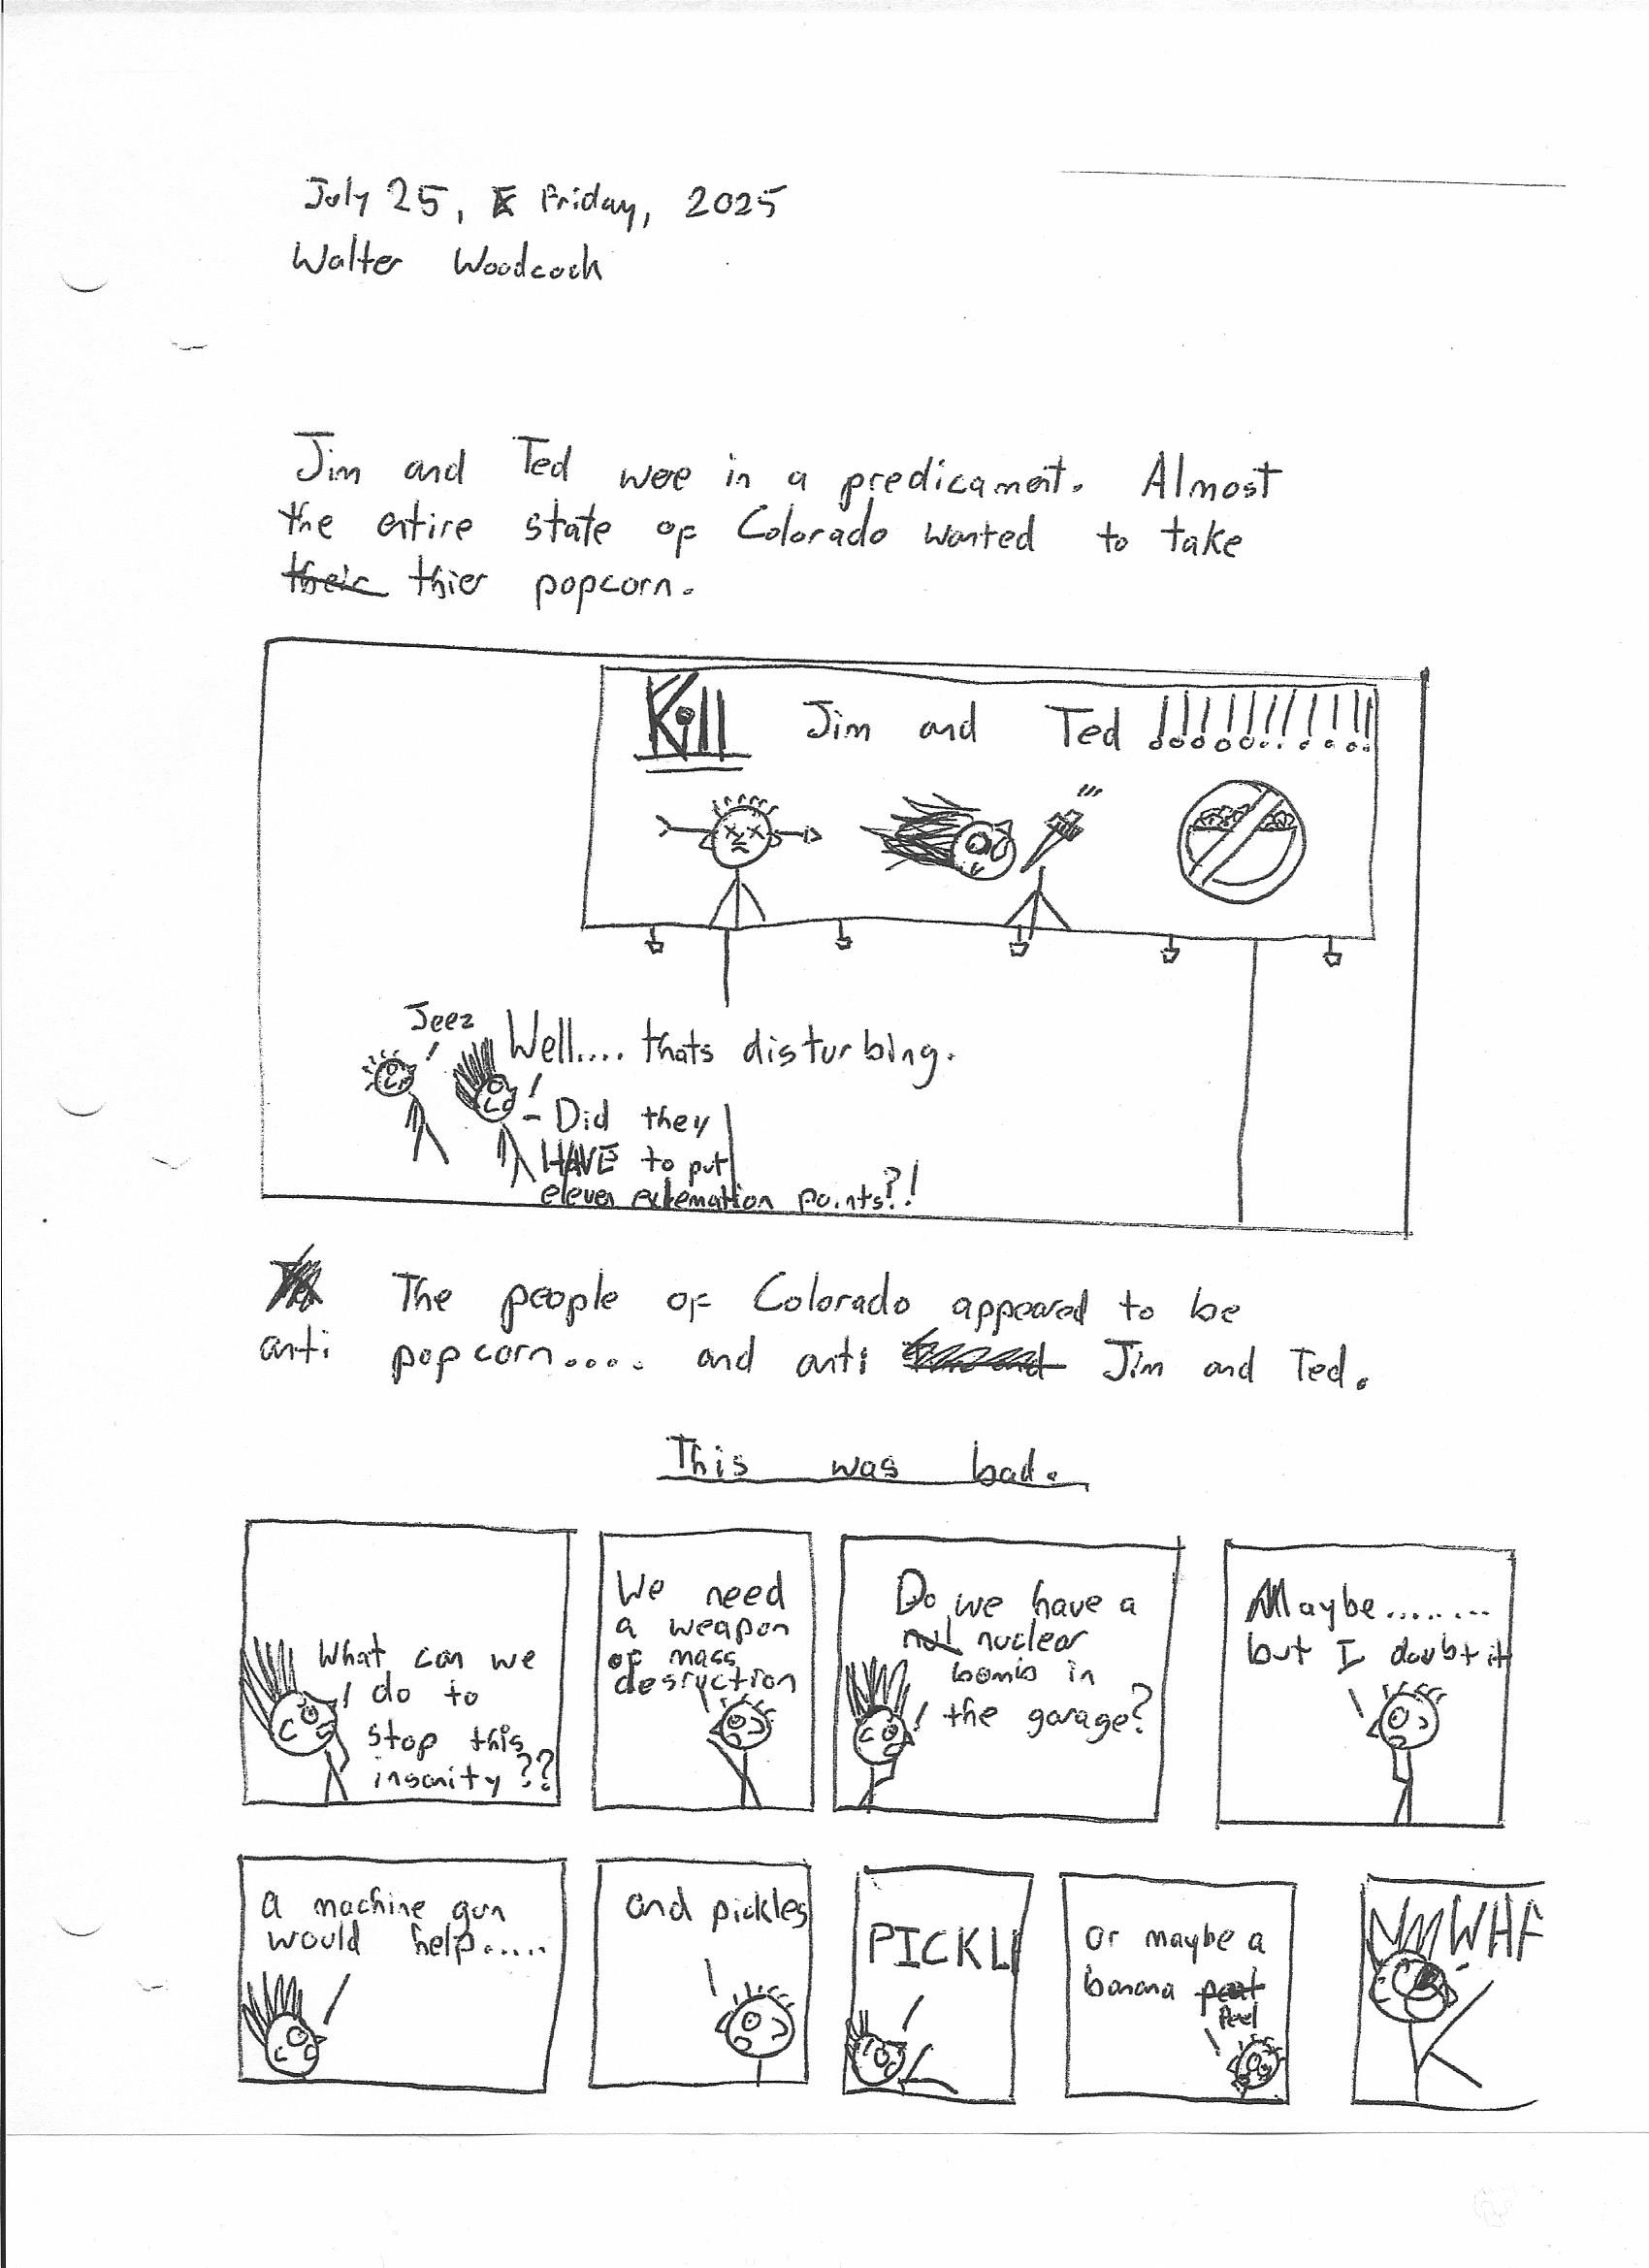 July 25, Friday, 2025
Walter Woodcock
Jim and Ted wee in a predicament. Almost
the entire state of Colorado wanted to take
their thier popcorn.
Kill Jim and Ted !!!!!!!!!!!
Jeez
Well.... thats disturbing.
Did they
HAVE to put
eleven exlemation points?!
The people of Colorado appeared to be
anti popcorn.... and anti Jim and Ted.
This was bad.
What can we
do to
stop this
insanity??
We need
a weapon
of mass
desruction
Do we have a
nul nuclear
bomb in
the garage?
Maybe........
but I doubt it
a machine gun
would help.....
and pickles
PICKL
or maybe a
banana
Peel
WHA